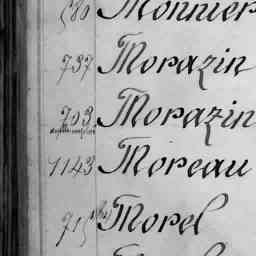 580 Monnier
737 Morazin
703 Morazin
1143 Moreau
715 Morel